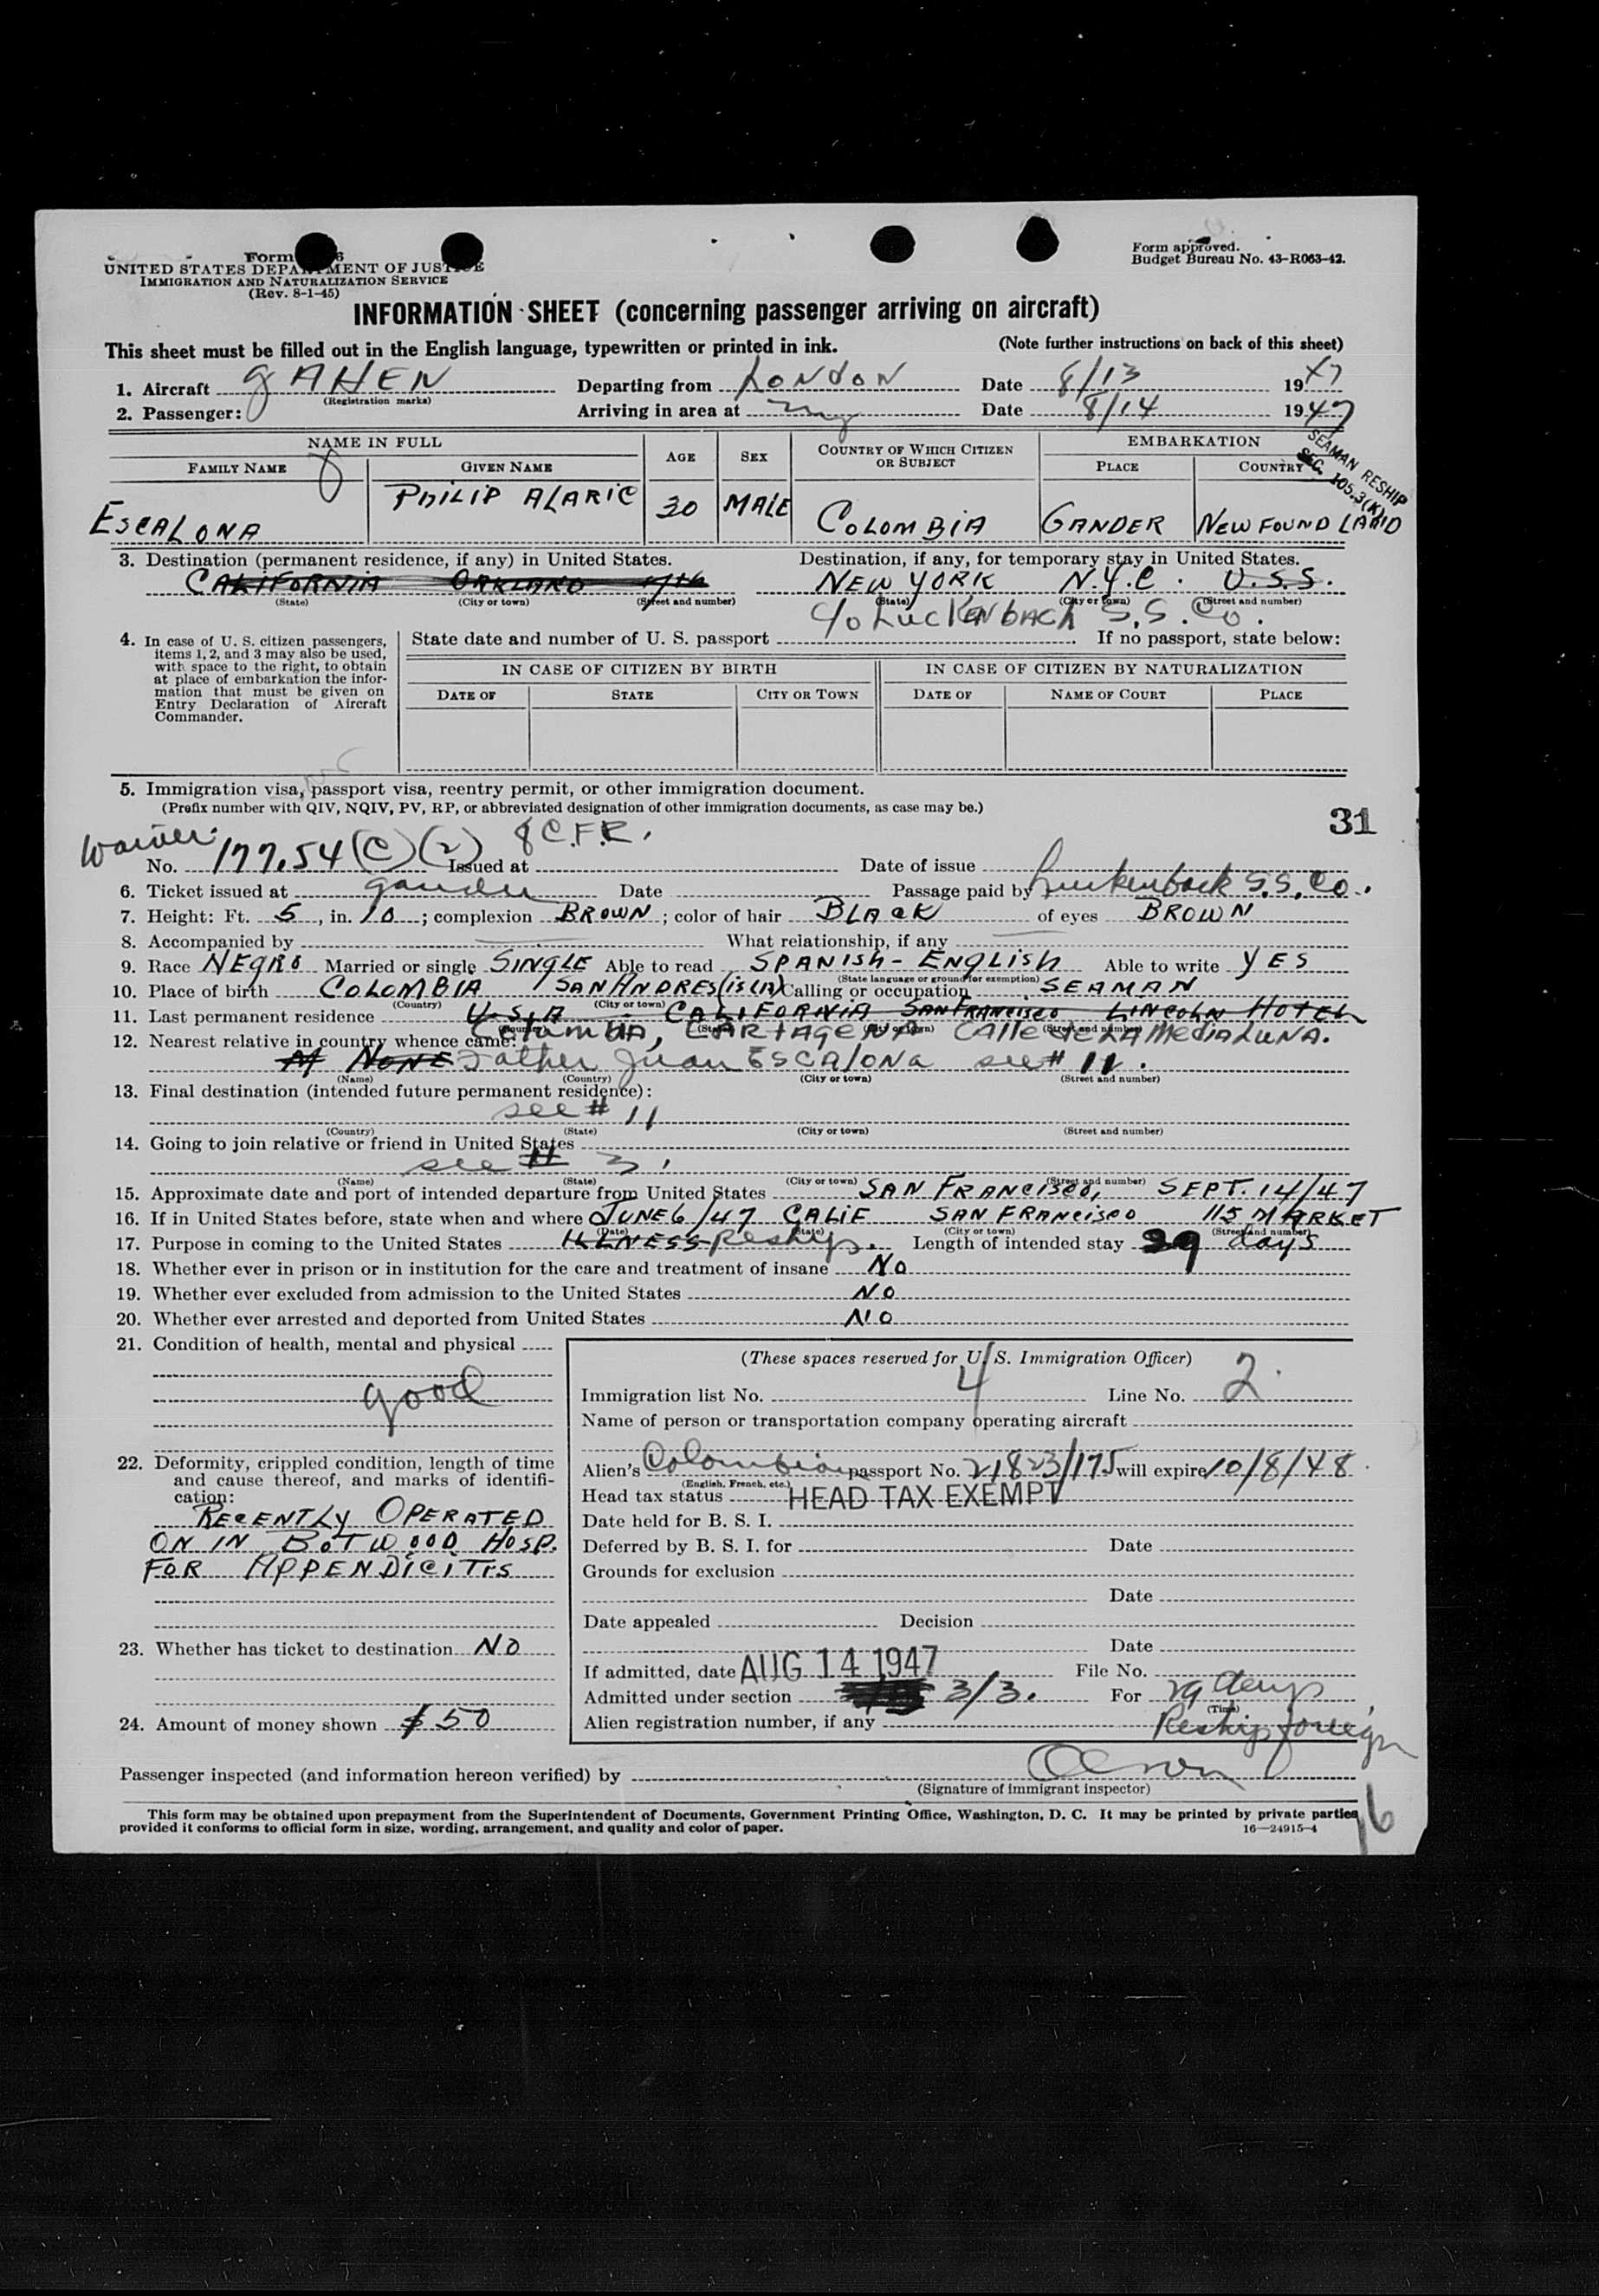 Form
UNITED STATES DEPARTMENT OF JUSTICE
IMMIGRATION AND NATURALIZATION SERVICE
(Rev. 8-1-45)
Form approved.
Budget Bureau No. 43-R063-42.
INFORMATION SHEET (concerning passenger arriving on aircraft)
This sheet must be filled out in the English language, typewritten or printed in ink. (Note further instructions on back of this sheet)
1. Aircraft G AHEN Departing from LONDON Date 8/13 1947
(Registration marks)
2. Passenger: Arriving in area at NY Date 8/14 1947
SEAMAN RESHIP
SEC. 105.3(K)
NAME IN FULL AGE SEX COUNTRY OF WHICH CITIZEN OR SUBJECT EMBARKATION
FAMILY NAME GIVEN NAME PLACE COUNTRY
ESCALONA PHILIP ALARIC 30 MALE COLOMBIA GANDER NEWFOUNDLAND
3. Destination (permanent residence, if any) in United States. Destination, if any, for temporary stay in United States.
CALIFORNIA OAKLAND 7th NEW YORK N.Y.C. U.S.S.
(State) (City or town) (Street and number) (State) (City or town) (Street and number)
c/o LUCKENBACH S.S. Co.
4. In case of U. S. citizen passengers, items 1, 2, and 3 may also be used, with space to the right, to obtain at place of embarkation the information that must be given on Entry Declaration of Aircraft Commander.
State date and number of U. S. passport If no passport, state below:
IN CASE OF CITIZEN BY BIRTH IN CASE OF CITIZEN BY NATURALIZATION
DATE OF STATE CITY OR TOWN DATE OF NAME OF COURT PLACE
5. Immigration visa, passport visa, reentry permit, or other immigration document.
(Prefix number with QIV, NQIV, PV, RP, or abbreviated designation of other immigration documents, as case may be.)
31
Waiver
No. 177.54 (C) (2) 8 C.F.R. Issued at Date of issue
6. Ticket issued at Gander Date Passage paid by Luckenback S.S. Co.
7. Height: Ft. 5, in. 10; complexion BROWN; color of hair BLACK of eyes BROWN
8. Accompanied by What relationship, if any
9. Race NEGRO Married or single SINGLE Able to read SPANISH-ENGLISH Able to write YES
(State language or ground for exemption)
10. Place of birth COLOMBIA SAN ANDRES (ISLA) Calling or occupation SEAMAN
(Country) (City or town)
11. Last permanent residence U.S.A CALIFORNIA SAN FRANCISCO LINCOLN HOTEL
(Country) (State) (City or town) (Street and number)
Columbia, CARTAGENA Calle de LA MediaLUNA.
12. Nearest relative in country whence came:
NONE Father Juan ESCALONA see # 11.
(Name) (Country) (City or town) (Street and number)
13. Final destination (intended future permanent residence):
see # 11
(Country) (State) (City or town) (Street and number)
14. Going to join relative or friend in United States
see # 3.
(Name) (State) (City or town) (Street and number)
15. Approximate date and port of intended departure from United States SAN FRANCISCO, SEPT. 14/47
16. If in United States before, state when and where JUNE 6/47 CALIF SAN FRANCISCO 115 MARKET
(Date) (State) (City or town) (Street and number)
17. Purpose in coming to the United States ILLNESS Reship. Length of intended stay 29 days
18. Whether ever in prison or in institution for the care and treatment of insane NO
19. Whether ever excluded from admission to the United States NO
20. Whether ever arrested and deported from United States NO
21. Condition of health, mental and physical
good
22. Deformity, crippled condition, length of time and cause thereof, and marks of identification:
RECENTLY OPERATED
ON IN BOTWOOD HOSP.
FOR APPENDICITIS
23. Whether has ticket to destination NO
24. Amount of money shown $50
(These spaces reserved for U. S. Immigration Officer)
Immigration list No. 4 Line No. 2
Name of person or transportation company operating aircraft
Alien's Colombian passport No. 21823/175 will expire 10/8/48
(English, French, etc.)
Head tax status HEAD TAX EXEMPT
Date held for B. S. I.
Deferred by B. S. I. for Date
Grounds for exclusion
Date
Date appealed Decision
Date
If admitted, date AUG 14 1947 File No.
Admitted under section 3/3. For 29 days
(Time)
Alien registration number, if any Reship foreign
Passenger inspected (and information hereon verified) by
(Signature of immigrant inspector)
This form may be obtained upon prepayment from the Superintendent of Documents, Government Printing Office, Washington, D. C. It may be printed by private parties
provided it conforms to official form in size, wording, arrangement, and quality and color of paper. 16—24915-4